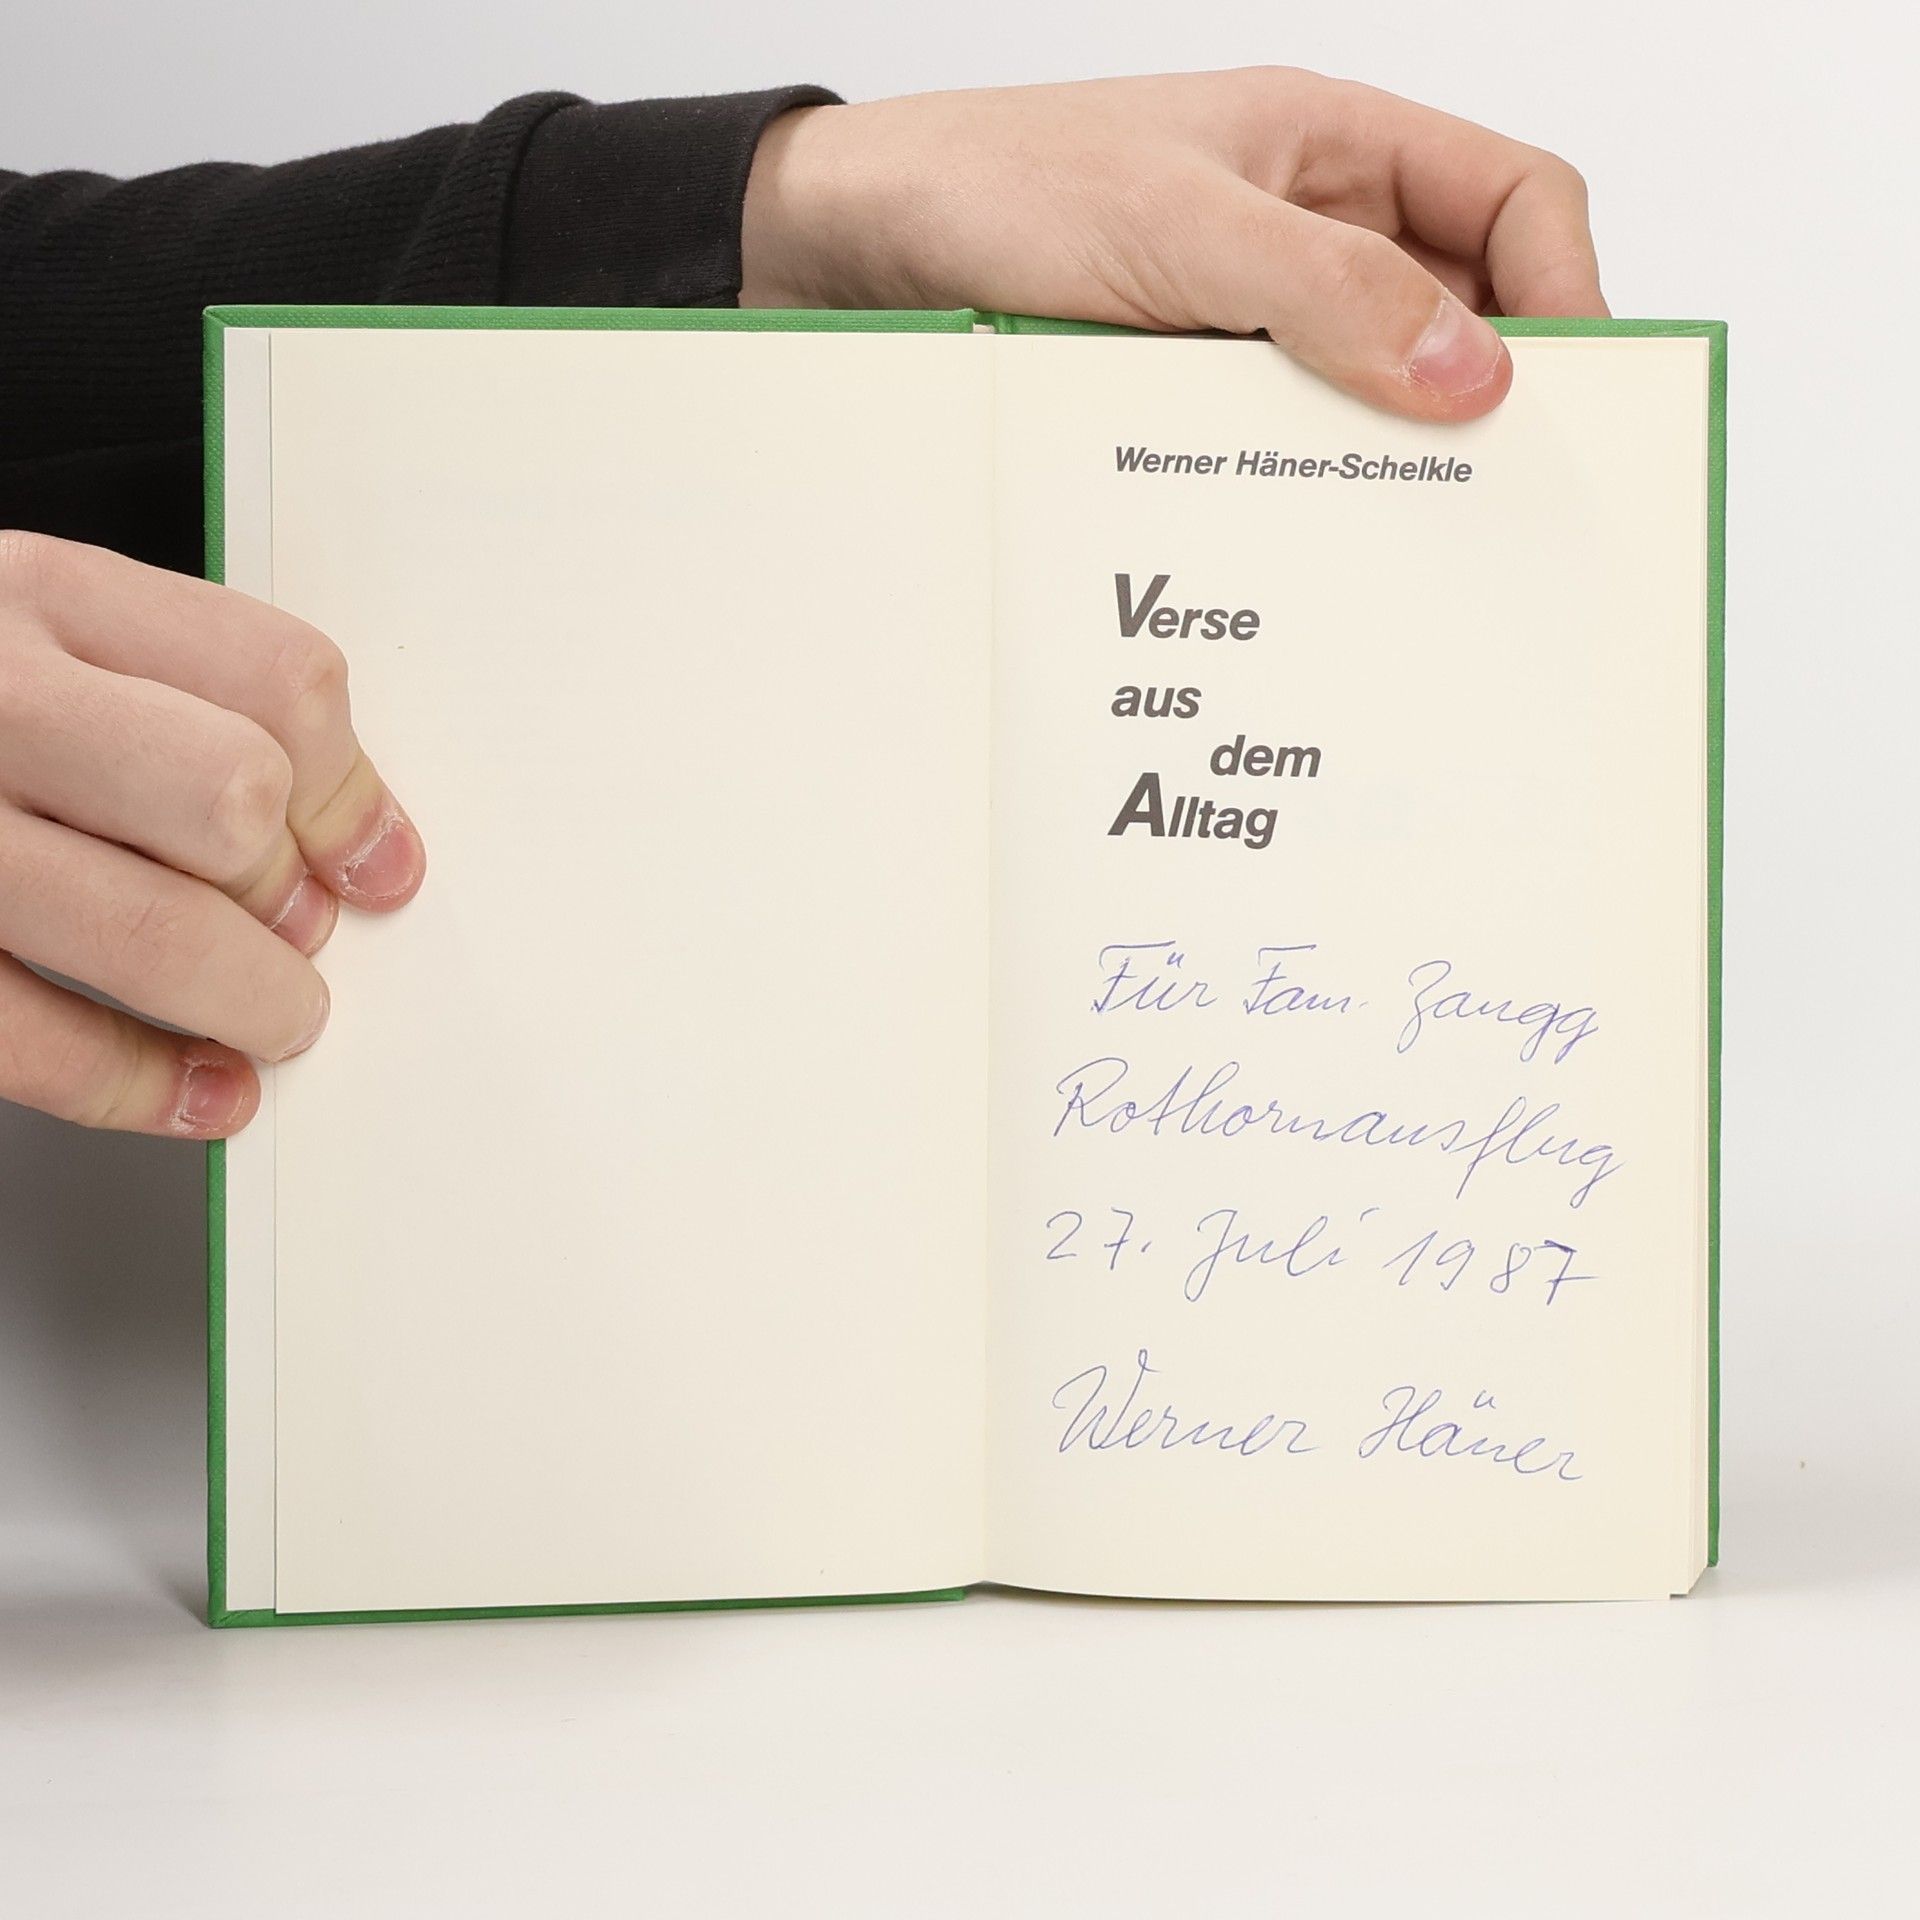 Werner Häner-Schelkle
Verse
aus
dem
Alltag
Für Fam. Zaugg
Rothornausflug
27. Juli 1987
Werner Häner